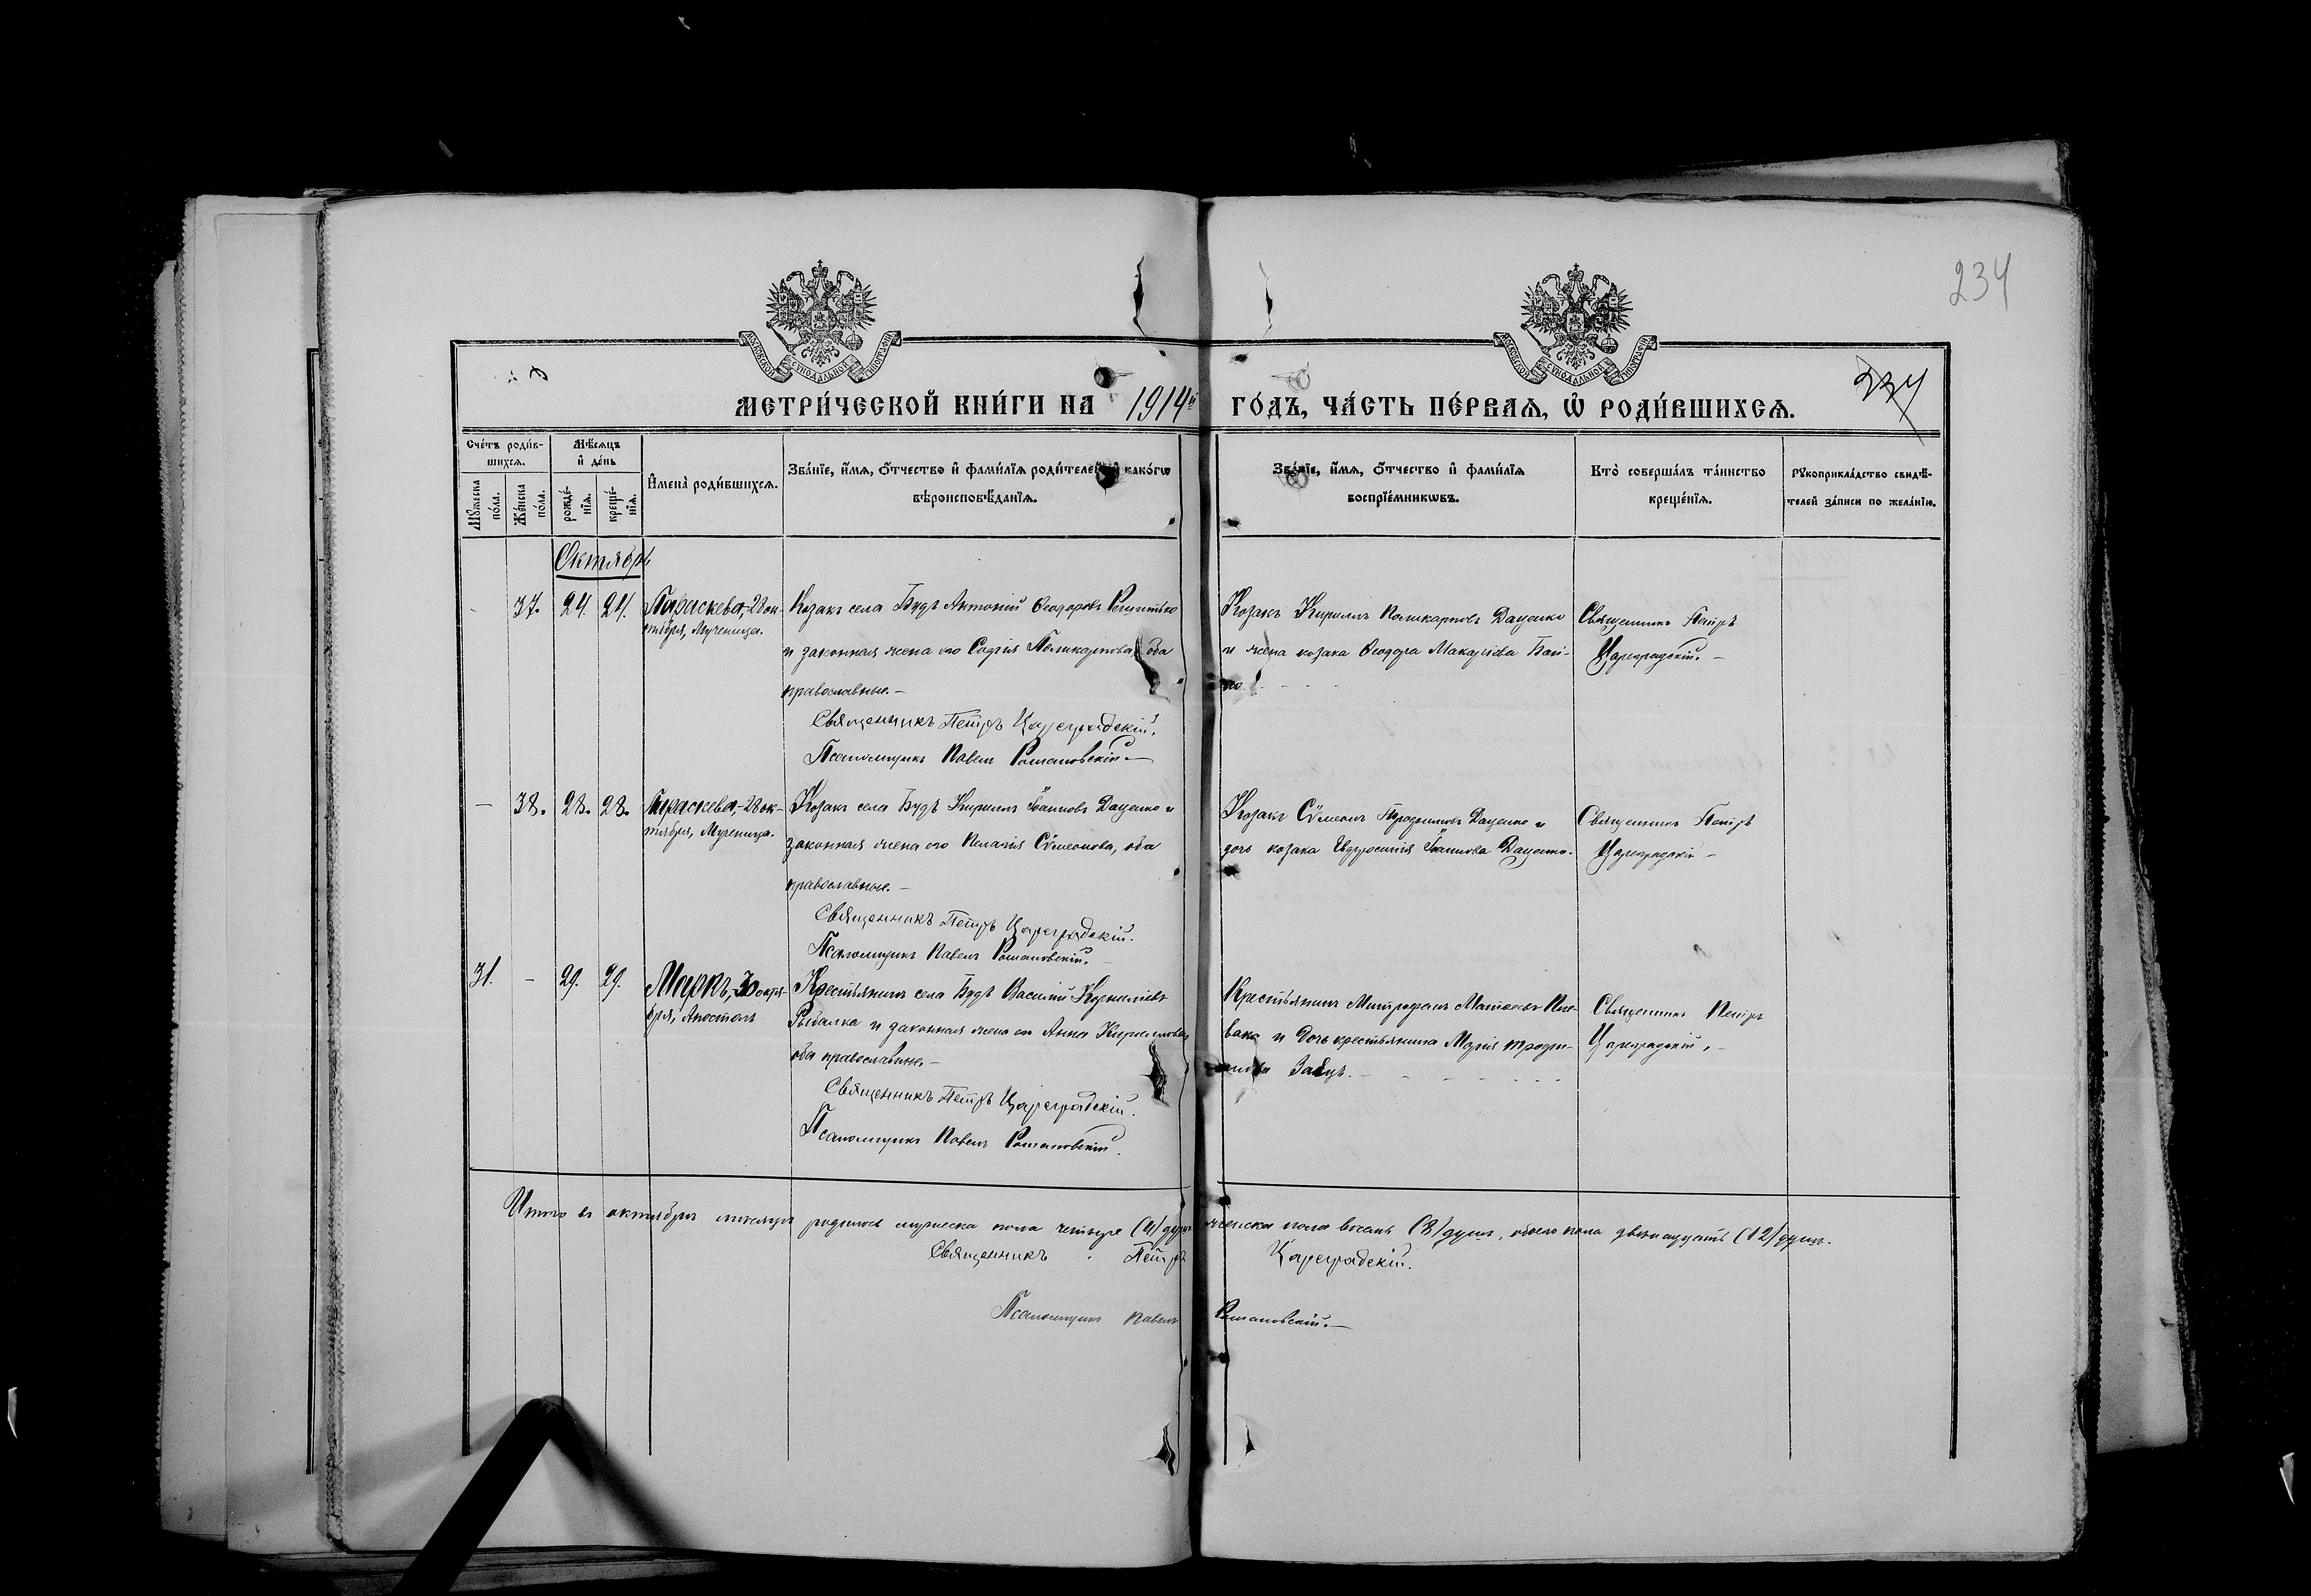 234
234
МОСКОВСКОЙ СѴНОДАЛЬНОЙ ТИПОГРАФІИ
МОСКОВСКОЙ СѴНОДАЛЬНОЙ ТИПОГРАФІИ
МЕТРИ́ЧЕСКОЙ КНИ́ГИ НА 1914й ГО́ДЪ, ЧА́СТЬ ПЕ́РВАЯ, Ѡ҆ РОДИ́ВШИХСЯ.
Сче́тъ роди́в-
шихся.
Мѣ́сяцъ
и҆ де́нь
Му́жеска по́ла.
Же́нска по́ла.
рожде́-нїя.
креще́-нїя.
И҆мена̀ роди́вшихся.
Зва́нїе, и҆́мя, ѻ҆́тчество и҆ фами́лїя роди́телей, и҆ како́гѡ
вѣроисповѣ́данїя.
Зва́нїе, и҆́мя, ѻ҆́тчество и҆ фами́лїя
воспрїе́мникѡвъ.
Кто̀ соверша́лъ та́инство
креще́нїя.
Рукоприкла́дство свидѣ́-
телей за́писи по жела́нїю.
Октябрь
37. 24. 24. Параскева, 28 ок-
тября, Мученица.
Козакъ села Будъ Антоній Ѳеодоровъ
и законная жена его Софія Поликарпова, оба
православные.—
Священникъ Петръ Цареградскій.
Псаломщикъ Павелъ Романовскій.—
Козакъ Кириллъ Поликарповъ Даценко
и жена козака Ѳеодора Макарьева Бой-
ко
Священникъ Петръ
Цареградскій.—
— 38. 28. 28. Параскева, 28 ок-
тября, Мученица.
Козакъ села Будъ Кириллъ Іоанновъ Даценко и
законная жена его Пелагія Сѵмеонова, оба
православные.—
Священникъ Петръ Цареградскій.
Псаломщикъ Павелъ Романовскій.
Козакъ Сѵмеонъ Трофимовъ Даценко и
дочь козака Евфросинія Іоаннова Даценко.
Священникъ Петръ
Цареградскій —
31. — 29. 29. Маркъ, 30 октя-
бря, Апостолъ
Крестьянинъ села Будъ Василій Корниліевъ
Рыбалка и законная жена его Анна Кириллова,
оба православные.—
Священникъ Петръ Цареградскій.
Псаломщикъ Павелъ Романовскій.
Крестьянинъ Митрофанъ Матѳеевъ
и дочь крестьянина Марія Трофи-
мова Заецъ.—
Священникъ Петръ
Цареградскій.—
Итого въ октябрѣ мѣсяцѣ родилось мужеска пола четыре (4) души женска пола восемь (8) душъ, обоего пола двѣнадцать (12) душъ.
Священникъ Петръ Цареградскій.
Псаломщикъ Павелъ Романовскій.—